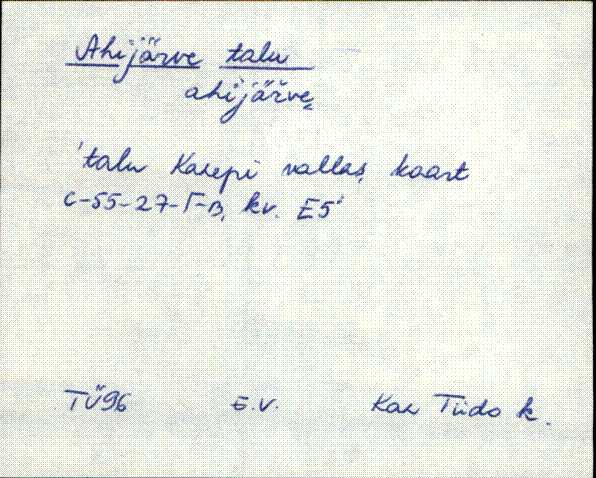 Ahijärve talu
ahijär̆ve
'talu Kasepi vallas, kaart
C-55-27-Г-в, kv. E5'
TÜ96 E.V. Kas Tiido k.